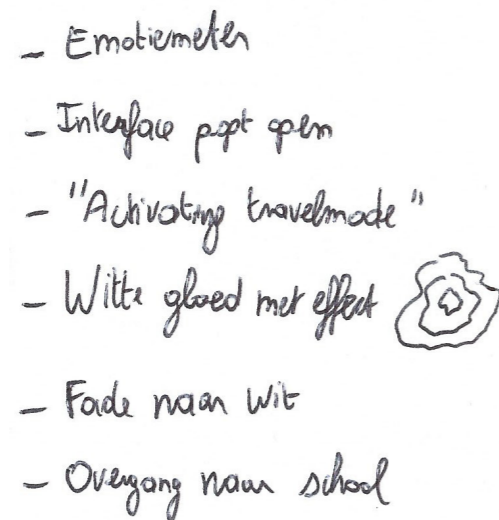 - Emotiemeter
- Interface popt open
- "Activating travelmode"
- Witte gloed met effect
- Fade naar wit
- Overgang naar school